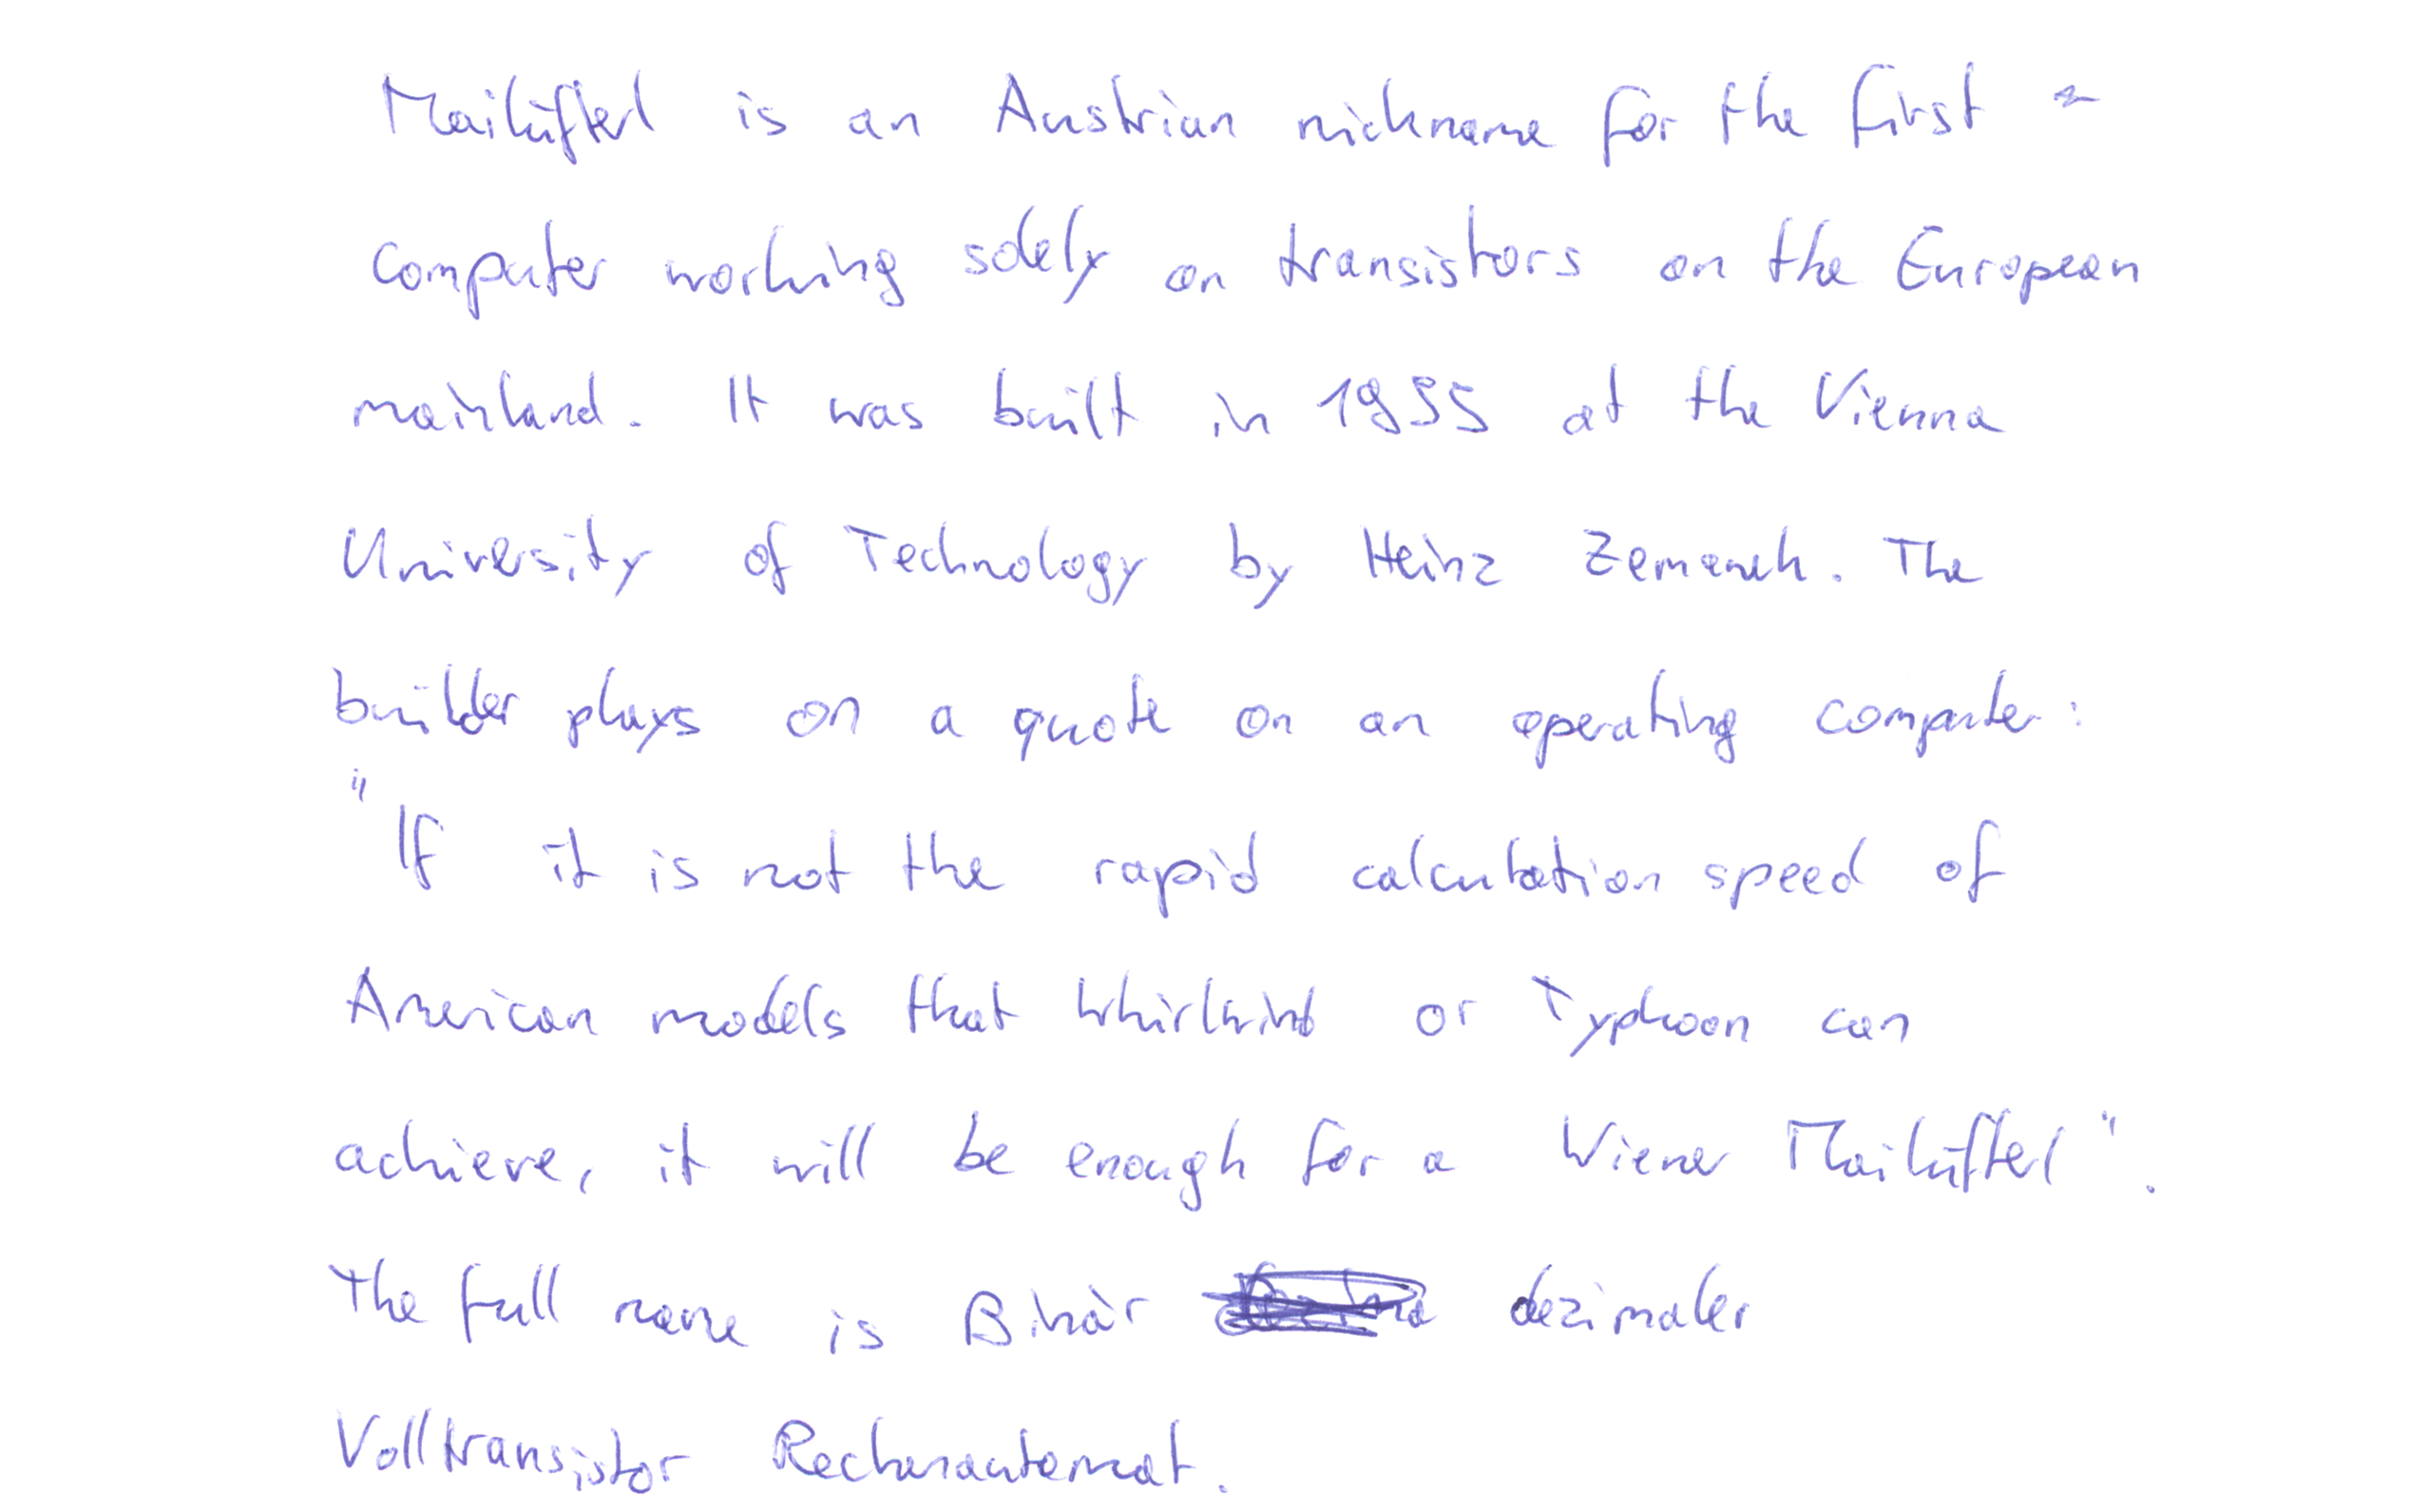 Mailüfterl is an Austrian nickname for the first
computer working solely on transistors on the European
mainland. It was built in 1955 at the Vienna
University of Technology by Heinz Zemanek. The
builder plays on a quote on an operating computer:
"If it is not the rapid calculation speed of
American models that Whirlwind or Typhoon can
achieve, it will be enough for a Wiener Mailüfterl".
The full name is Binär dezimaler
Volltransistor Rechenautomat.